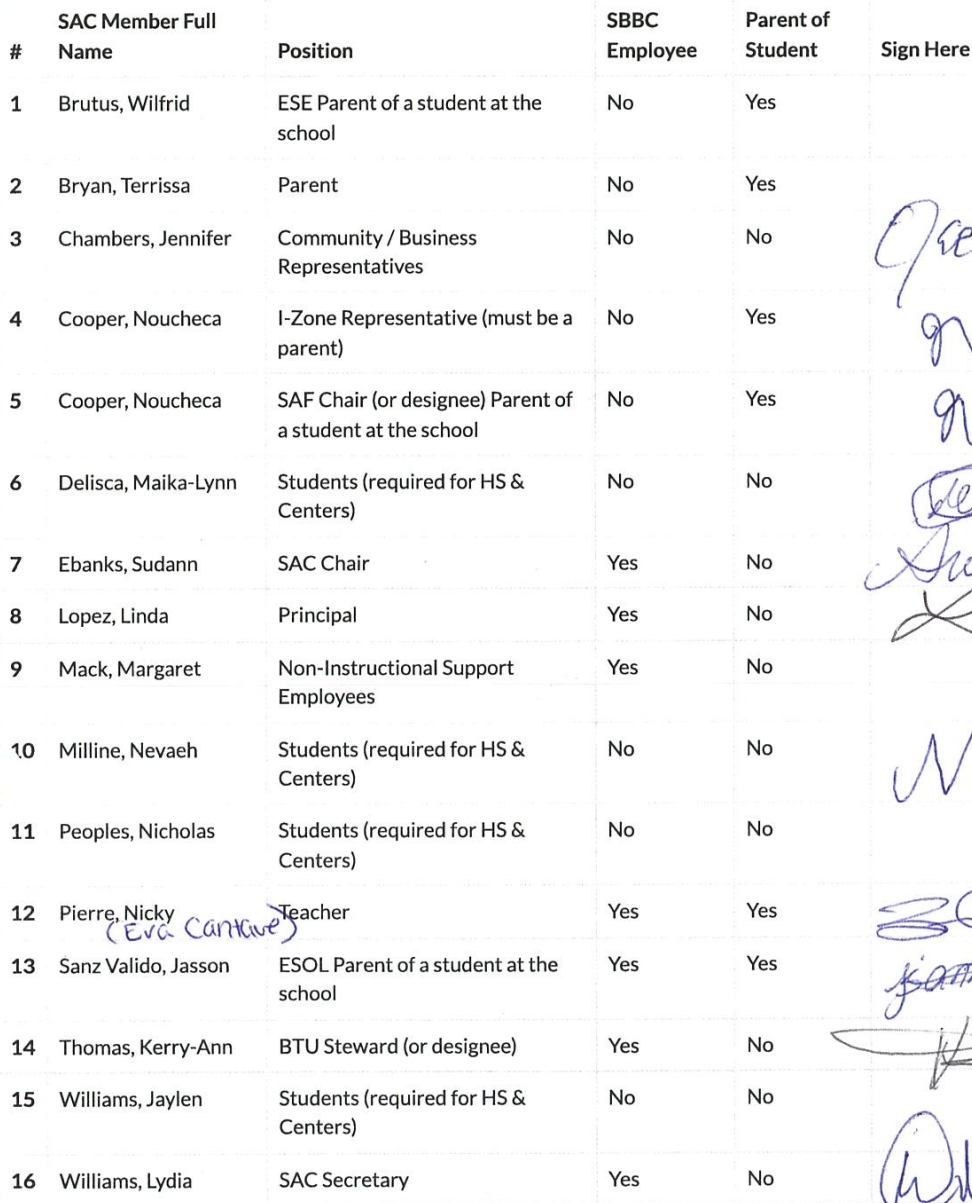 SAC Member Full SBBC Parent of
# Name Position Employee Student Sign Here
1 Brutus, Wilfrid ESE Parent of a student at the No Yes
school
2 Bryan, Terrissa Parent No Yes
3 Chambers, Jennifer Community / Business No No
Representatives
4 Cooper, Noucheca I-Zone Representative (must be a No Yes
parent)
5 Cooper, Noucheca SAF Chair (or designee) Parent of No Yes
a student at the school
6 Delisca, Maika-Lynn Students (required for HS & No No
Centers)
7 Ebanks, Sudann SAC Chair Yes No
8 Lopez, Linda Principal Yes No
9 Mack, Margaret Non-Instructional Support Yes No
Employees
10 Milline, Nevaeh Students (required for HS & No No
Centers)
11 Peoples, Nicholas Students (required for HS & No No
Centers)
12 Pierre, Nicky Teacher Yes Yes
(Eva Cantave)
13 Sanz Valido, Jasson ESOL Parent of a student at the Yes Yes
school
14 Thomas, Kerry-Ann BTU Steward (or designee) Yes No
15 Williams, Jaylen Students (required for HS & No No
Centers)
16 Williams, Lydia SAC Secretary Yes No